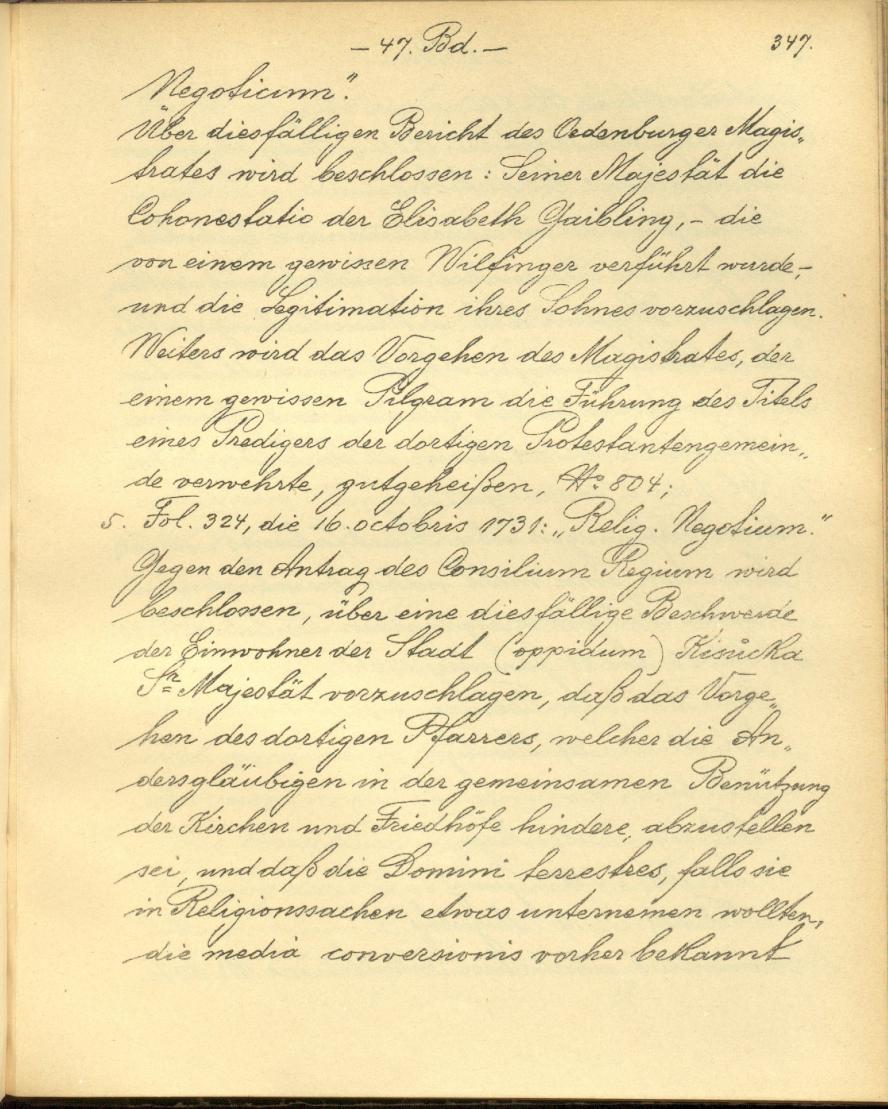 — 47. Bd. — 347.
Negoticum".
Über diesfälligen Bericht des Oedenburger Magis„
trates wird beschlossen: Seiner Majestät die
Cohonestatio der Elisabeth Gaibling, – die
von einem gewissen Wilfinger verführt wurde –,
und die Legitimation ihres Sohnes vorzuschlagen.
Weiters wird das Vorgehen des Magistrates, der
einem gewissen Pilgram die Führung des Titels
eines Predigers der dortigen Protestantengemein„
de verwehrte, gutgeheißen, No. 804;
5. Fol. 324, die 16. octobris 1731: „Relig. Negotium."
Gegen den Antrag des Consilium Regium wird
beschlossen, über eine diesfällige Beschwerde
der Einwohner der Stadt (oppidum) Kisučka
Sr. Majestät vorzuschlagen, daß das Vorge„
hen des dortigen Pfarrers, welcher die An„
dersgläubigen in der gemeinsamen Benützung
der Kirchen und Friedhöfe hindere, abzustellen
sei, und daß die Domini terrestres, falls sie
in Religionssachen etwas unternemen wollten,
die media conversionis vorher bekannt